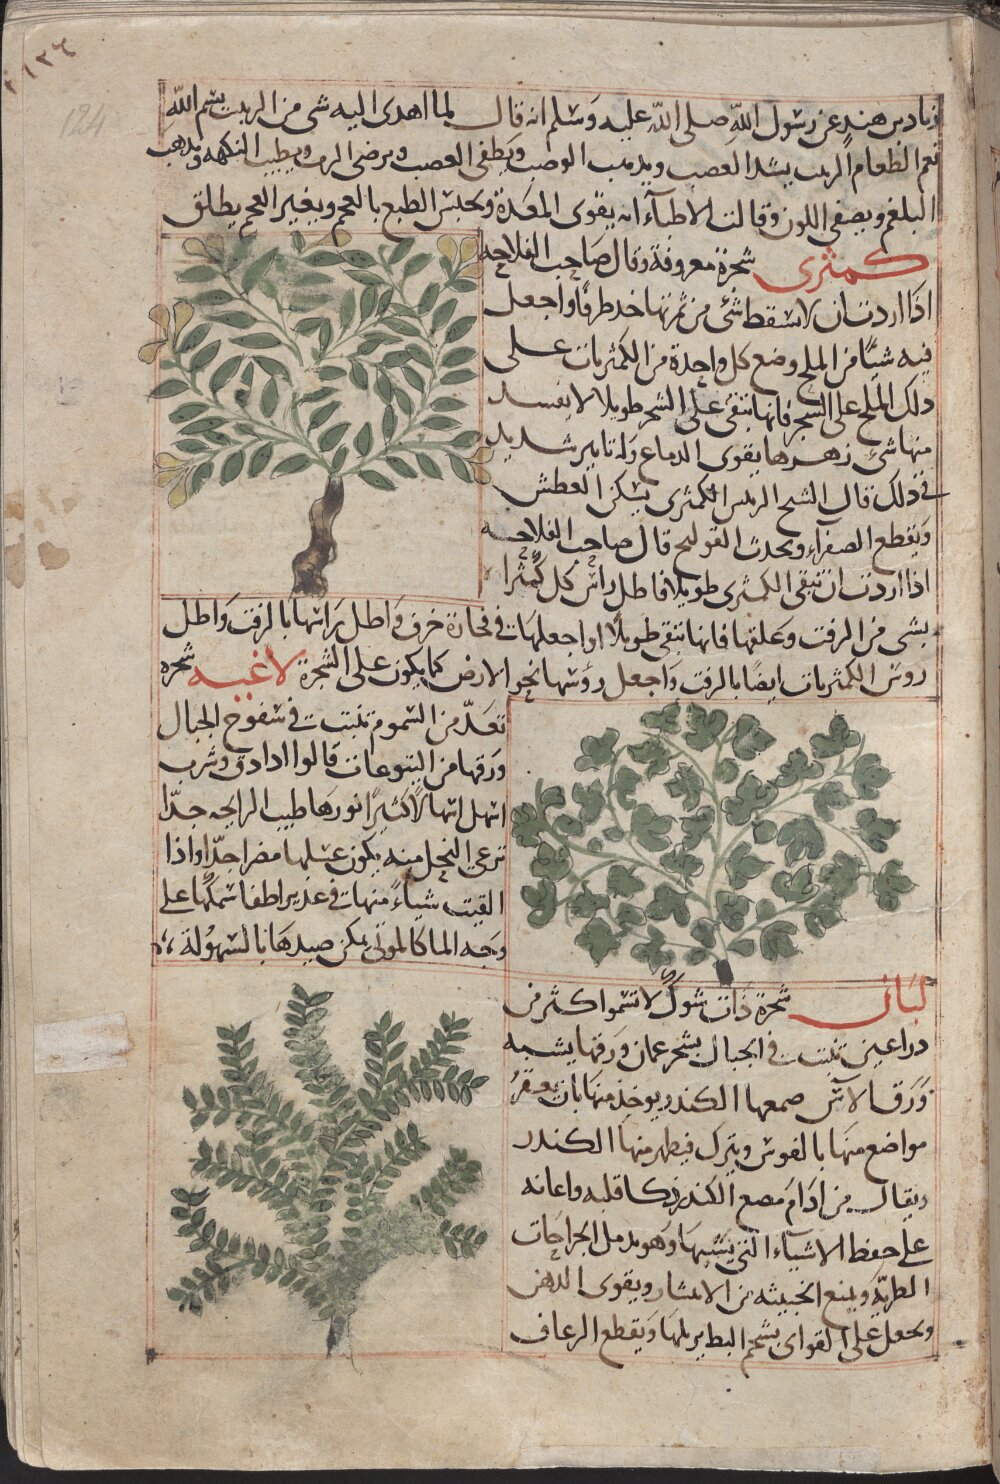 ١٣٦
124
زياد بن هند عن رسول الله صلى الله عليه وسلم انه قال لما اهدى اليه شى من الزبيب بسم الله
نعم الطعام الزبيب يشد العصب ويذهب الوصب ويطفى الغضب ويرضى الرب ويطيب النكهه ويذهب
البلغم ويصفى اللون وقالت الاطباء انه يقوى المعدة ويحبس الطبع بالعجم وبغير العجم يطلق
كمثرى شجرة معروفة وقال صاحب الفلاحه
اذا اردت ان لا يسقط شئ من ثمرتها خذ ظرفا واجعل
فيه شيئا من الملح وضع كل واحدة من الكمثريات على
ذلك الملح على الشجر فانها تبقى على الشجر طويلا لا يفسد
منها شئ زهرها يقوى الدماغ وله تاثير شديد
فى ذلك قال الشيخ الرئيس الكمثرى يسكن العطش
ويقطع الصفراء ويحدث القولنج قال صاحب الفلاحه
اذا اردت ان تبقى الكمثرى طويلا فاطل راس كل كمثرا
بشى من الزفت وعلقها فانها تبقى طويلا او اجعلها فى فخارة خزف واطل راسها بالزفت واطل
روس الكمثريات ايضا بالزفت واجعل رؤسها نحو الارض كما يكون على الشجرة لاغيه شجرة
تعد من السموم تنبت فى سفوح الجبال
ورقها من اليتوعات قالوا اذا دق وشرب
اسهل اسهالا كثيرا نورها طيب الرايحه جدا
ترعى النحل منه يكون عسلها مضرا جدا واذا
القيت شياء منها فى غدير اطفا سمكها على
وجه الما كالموتى يمكن صيدها بالسهولة
لبان شجرة ذات شوك لا تسموا كثر من
ذراعين تنبت فى الجبال بشحر عمان ورقها يشبه
ورق الاس صمغها الكندر يوخذ منها بان يعقر
مواضع منها بالفوس ويترك فيظهر منها الكندر
ويقال من ادام مضغ الكندر ذكا قلبه واعانه
على حفظ الاشياء التى ينسيها وهو يدمل الجراحات
الطرية ويمنع الخبيثه من الانتشار ويقوى الذهن
ويجعل على القوابى بشحم البط يزيلها ويقطع الرعاف